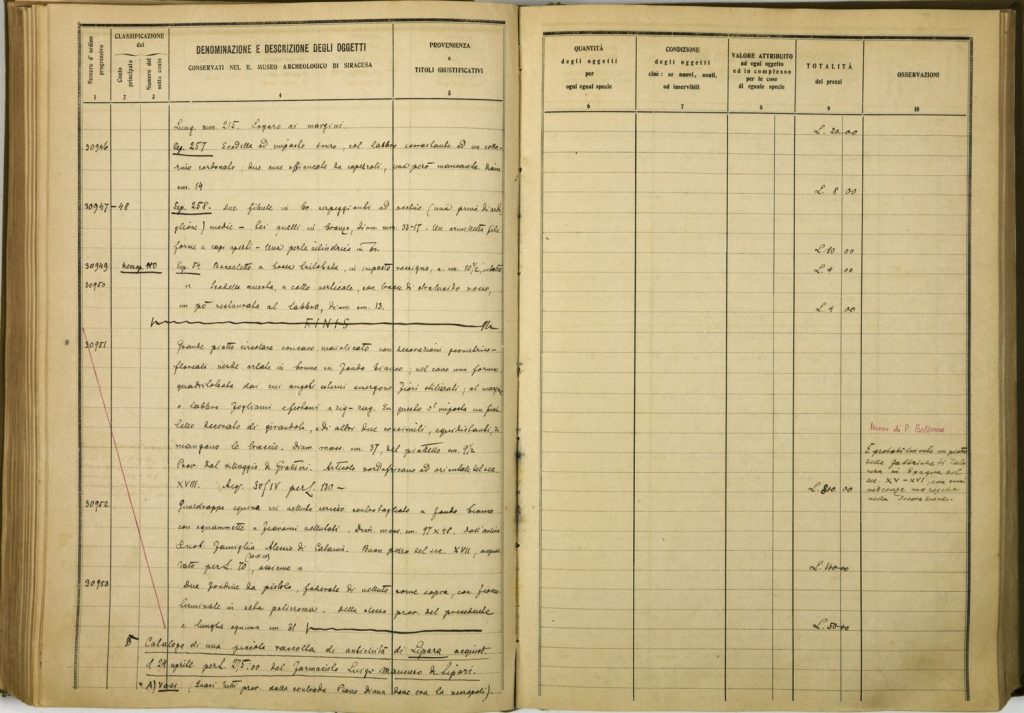 Numero d'ordine progressivo
CLASSIFICAZIONE del
Conto principale
Numero del sotto conto
DENOMINAZIONE E DESCRIZIONE DEGLI OGGETTI
CONSERVATI NEL R. MUSEO ARCHEOLOGICO DI SIRACUSA
PROVENIENZA
e
TITOLI GIUSTIFICATIVI
1 2 3 4 5
QUANTITÀ
degli oggetti
per
ogni egual specie
CONDIZIONE
degli oggetti
cioè: se nuovi, usati,
od inservibili
VALORE ATTRIBUITO
ad ogni oggetto
ed in complesso
per le cose
di eguale specie
TOTALITÀ
dei prezzi
OSSERVAZIONI
6 7 8 9 10
Lung. mm. 215. Logoro ai margini.
L. 20 00
30946 Sep. 257 Scodella ad impasto scuro, col labbro
cordonato, due anse affiancate da capezzoli, una però mancante. Diam.
cm. 14
L. 8 00
30947-48 Sep. 258. Due fibule in br. serpeggianti ad occhio (una priva di ardiglione)
medie - Sei anelli in bronzo, diam. mm. 33-17. Un armilletta fili
forme a capi aperti - Una perla cilindrica in br.
L. 10 00
30949 Sep. 59 Boccaletto a bocca trilobata, in impasto rossigno, a. cm. 10½, intatto
L. 4 00
30950 " Scodella a collo verticale, con tracce di rosso,
un pò restaurata al labbro, diam. cm. 13.
L. 4 00
FINIS
30951 Grande piatto circolare concavo maiolicato con decorazioni geometrico-
floreali verdi orlate in bruno su fondo bianco; nel cavo una forma
quadrilobata dai cui angoli esterni emergono fiori stilizzati; al margine
o labbro fogliami e festoni a zig-zag. In questo s'imposta un piat-
tello decorato di girandola, e di altri due consimili, equidistanti, ri-
mangono le tracce. Diam. mass. cm. 37, del piattello cm. 9½
Prov. dal villaggio di Grattieri. Articolo nordafricano ad orientale del sec.
XVIII. Acq. 30/IV per L. 130 -
L. 800 00
Museo di P. Bellomo
È probabilmente un piatto
delle fabbriche di
in Spagna del
sec. XV-XVI, con remi
niscenze moresche
nella decorazione.
30952 Gualdrappa equina in velluto controtagliato a fondo bianco
con e vellutati. Dim. mass. cm. 97 x 48. Dall'antica
famiglia Alessi di Catania. Buon pezzo del sec. XVII, acquis
tato per L. 70, assieme a
L. 100 00
30953 Due fondine da pistola, foderate di velluto come sopra, con fiocco
terminale in seta policroma. Della stessa prov. del precedente
e lunghe ognuna cm. 31
L. 50 00
Catalogo di una piccola raccolta di antichità di Lipara acquist.
il 24 aprile per L. 275.00 dal farmacista Luigi Mancuso di Lipari.
A) Vasi (Quasi tutti prov. dalla contrada Piano Diana dove era la necropoli)-